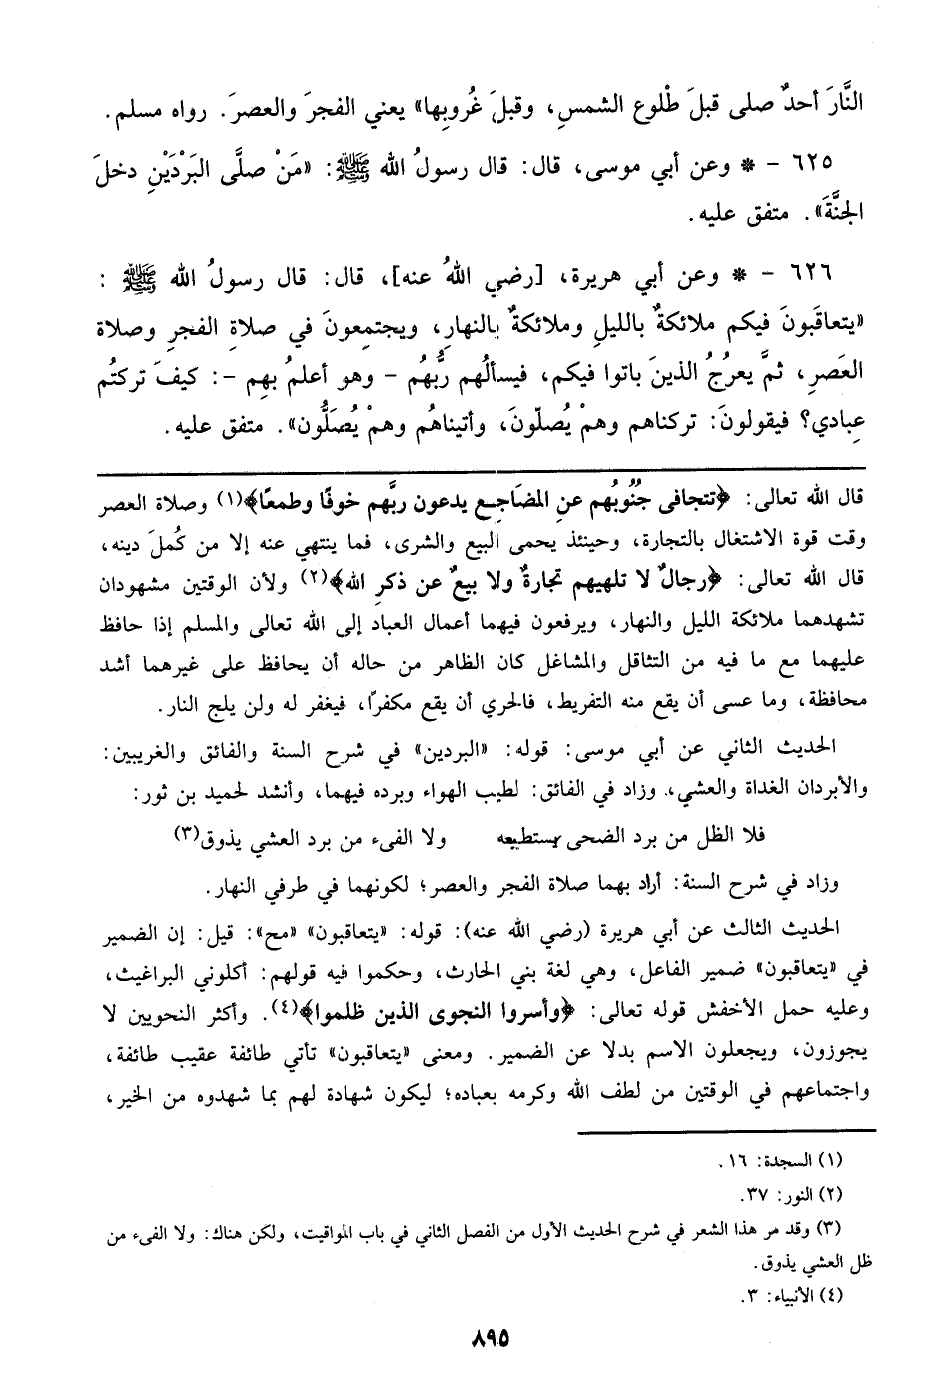 النَّارَ أحدٌ صلى قبلَ طُلوع الشمسِ، وقبلَ غُروبِها» يعني الفجرَ والعصرَ. رواه مسلم.
٦٢٥ - * وعن أبي موسى، قال: قال رسولُ الله ﷺ: «مَنْ صلَّى البَرْدَيْنِ دخلَ
الجنَّةَ». متفق عليه.
٦٢٦ - * وعن أبي هريرة، [رضي اللهُ عنه]، قال: قال رسولُ الله ﷺ :
«يتعاقَبونَ فيكم ملائكةٌ بالليلِ وملائكةٌ بالنهارِ، ويجتمِعونَ في صلاةِ الفجرِ وصلاة
العَصرِ، ثمَّ يعرُجُ الذينَ باتوا فيكم، فيسألُهم ربُّهُم - وهو أعلمُ بهِم -: كيفَ تركتُم
عِبادي؟ فيقولونَ: تركناهم وهمْ يُصلّونَ، وأتيناهُم وهمْ يُصَلُّون». متفق عليه.
قال الله تعالى: ﴿تتجافى جُنُوبُهم عنِ المضَاجِع يدعون ربَّهم خوفًا وطمعًا﴾(١) وصلاة العصر
وقت قوة الاشتغال بالتجارة، وحينئذ يحمى البيع والشرى، فما ينتهي عنه إلا من كُملَ دينه،
قال الله تعالى: ﴿رجالٌ لا تلهيهم تجارةٌ ولا بيعٌ عن ذكرِ الله﴾(٢) ولأن الوقتين مشهودان
تشهدهما ملائكة الليل والنهار، ويرفعون فيهما أعمال العباد إلى الله تعالى والمسلم إذا حافظ
عليهما مع ما فيه من التثاقل والمشاغل كان الظاهر من حاله أن يحافظ على غيرهما أشد
محافظة، وما عسى أن يقع منه التفريط، فالحري أن يقع مكفرًا، فيغفر له ولن يلج النار.
الحديث الثاني عن أبي موسى: قوله: «البردين» في شرح السنة والفائق والغريبين:
والأبردان الغداة والعشي، وزاد في الفائق: لطيب الهواء وبرده فيهما، وأنشد لحميد بن ثور:
فلا الظل من برد الضحى يستطيعه ولا الفىء من برد العشي يذوق(٣)
وزاد في شرح السنة: أراد بهما صلاة الفجر والعصر؛ لكونهما في طرفي النهار.
الحديث الثالث عن أبي هريرة (رضي الله عنه): قوله: «يتعاقبون» «مح»: قيل: إن الضمير
في «يتعاقبون» ضمير الفاعل، وهي لغة بني الحارث، وحكموا فيه قولهم: أكلوني البراغيث،
وعليه حمل الأخفش قوله تعالى: ﴿وأسروا النجوى الذين ظلموا﴾(٤). وأكثر النحويين لا
يجوزون، ويجعلون الاسم بدلا عن الضمير. ومعنى «يتعاقبون» تأتي طائفة عقيب طائفة،
واجتماعهم في الوقتين من لطف الله وكرمه بعباده؛ ليكون شهادة لهم بما شهدوه من الخير،
(١) السجدة: ١٦.
(٢) النور: ٣٧.
(٣) وقد مر هذا الشعر في شرح الحديث الأول من الفصل الثاني في باب المواقيت، ولكن هناك: ولا الفىء من
ظل العشي يذوق.
(٤) الأنبياء: ٣.
٨٩٥